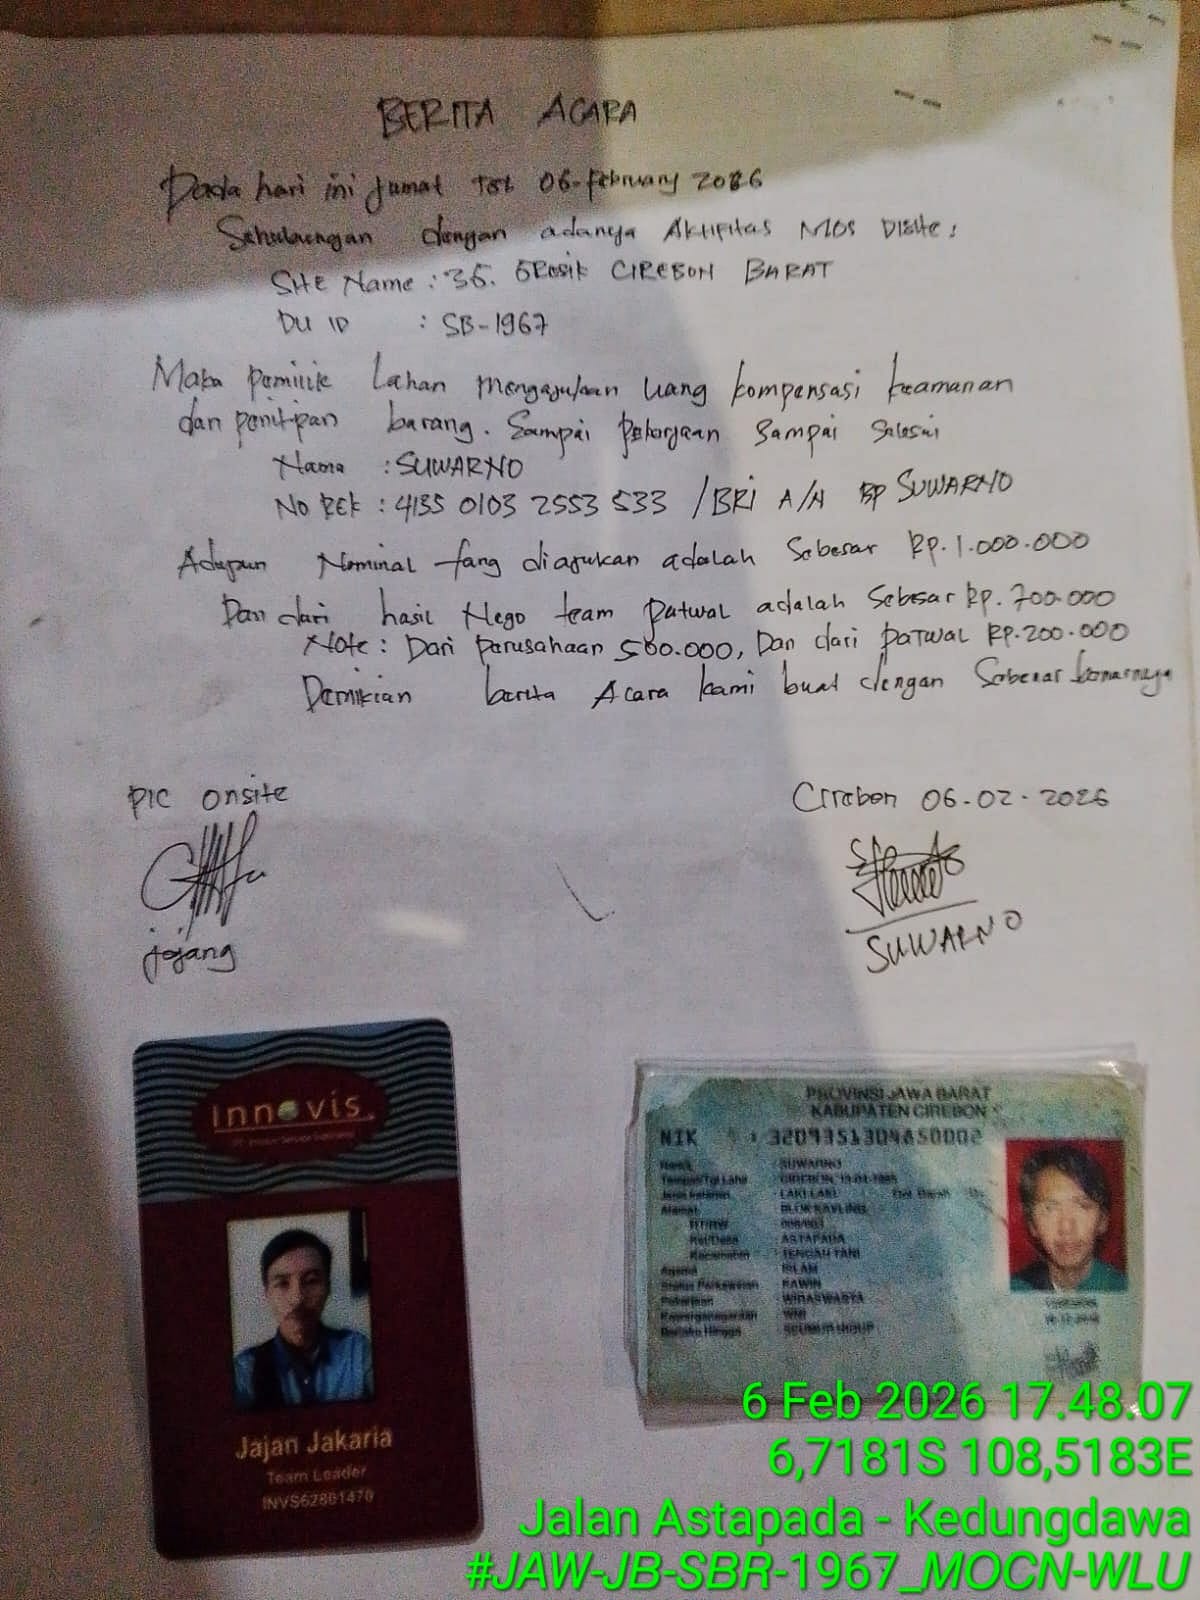 BERITA ACARA
Pada hari ini Jumat Tgl 06-February 2026
Sehubungan dengan adanya Aktifitas MOS Disite:
Site Name : 36. GResik CIREBON BARAT
DU ID : SB-1967
Maka pemilik Lahan mengajukan uang kompensasi keamanan
dan penitipan barang. Sampai pekerjaan sampai selesai
Nama : SUWARNO
NO REK : 4135 0103 2553 533 /BRI A/N BP SUWARNO
Adapun Nominal yang diajukan adalah Sebesar Rp. 1.000.000
Dan dari hasil Nego team patwal adalah Sebesar Rp. 700.000
Note : Dari perusahaan 500.000, Dan dari PATWAL Rp. 200.000
Demikian berita Acara kami buat dengan Sebenar benarnya
PIC onsite
Cirebon 06-02-2026
jajang
SUWARNO
Innovis
Jajan Jakaria
Team Leader
INVS62801470
PROVINSI JAWA BARAT
KABUPATEN CIREBON
NIK : 3209351304850002
Nama : SUWARNO
Tempat/Tgl Lahir : CIREBON, 13-04-1985
Jenis Kelamin : LAKI-LAKI Gol. Darah
Alamat : BLOK KAVLING
RT/RW
Kel/Desa : ASTAPADA
Kecamatan : TENGAH TANI
Agama : ISLAM
Status Perkawinan : KAWIN
Pekerjaan : WIRASWASTA
Kewarganegaraan : WNI
Berlaku Hingga : SEUMUR HIDUP
6 Feb 2026 17.48.07
6,7181S 108,5183E
Jalan Astapada - Kedungdawa
#JAW-JB-SBR-1967_MOCN-WLU